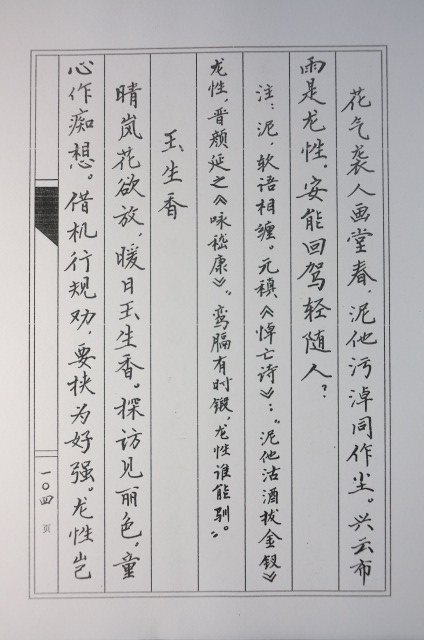 花气袭人画堂春，泥他污淖同作尘。兴云布
雨是龙性，安能回驾轻随人？
注：泥，软语相缠。元稹《悼亡诗》：“泥他沽酒拔金钗》
龙性，晋颜延之《咏嵇康》“鸾膈有时锻，龙性谁能驯。”
玉生香
晴岚花欲放，暖日玉生香。探访见丽色，童
心作痴想。借机行规劝，要挟为好强。龙性岂
一〇四页